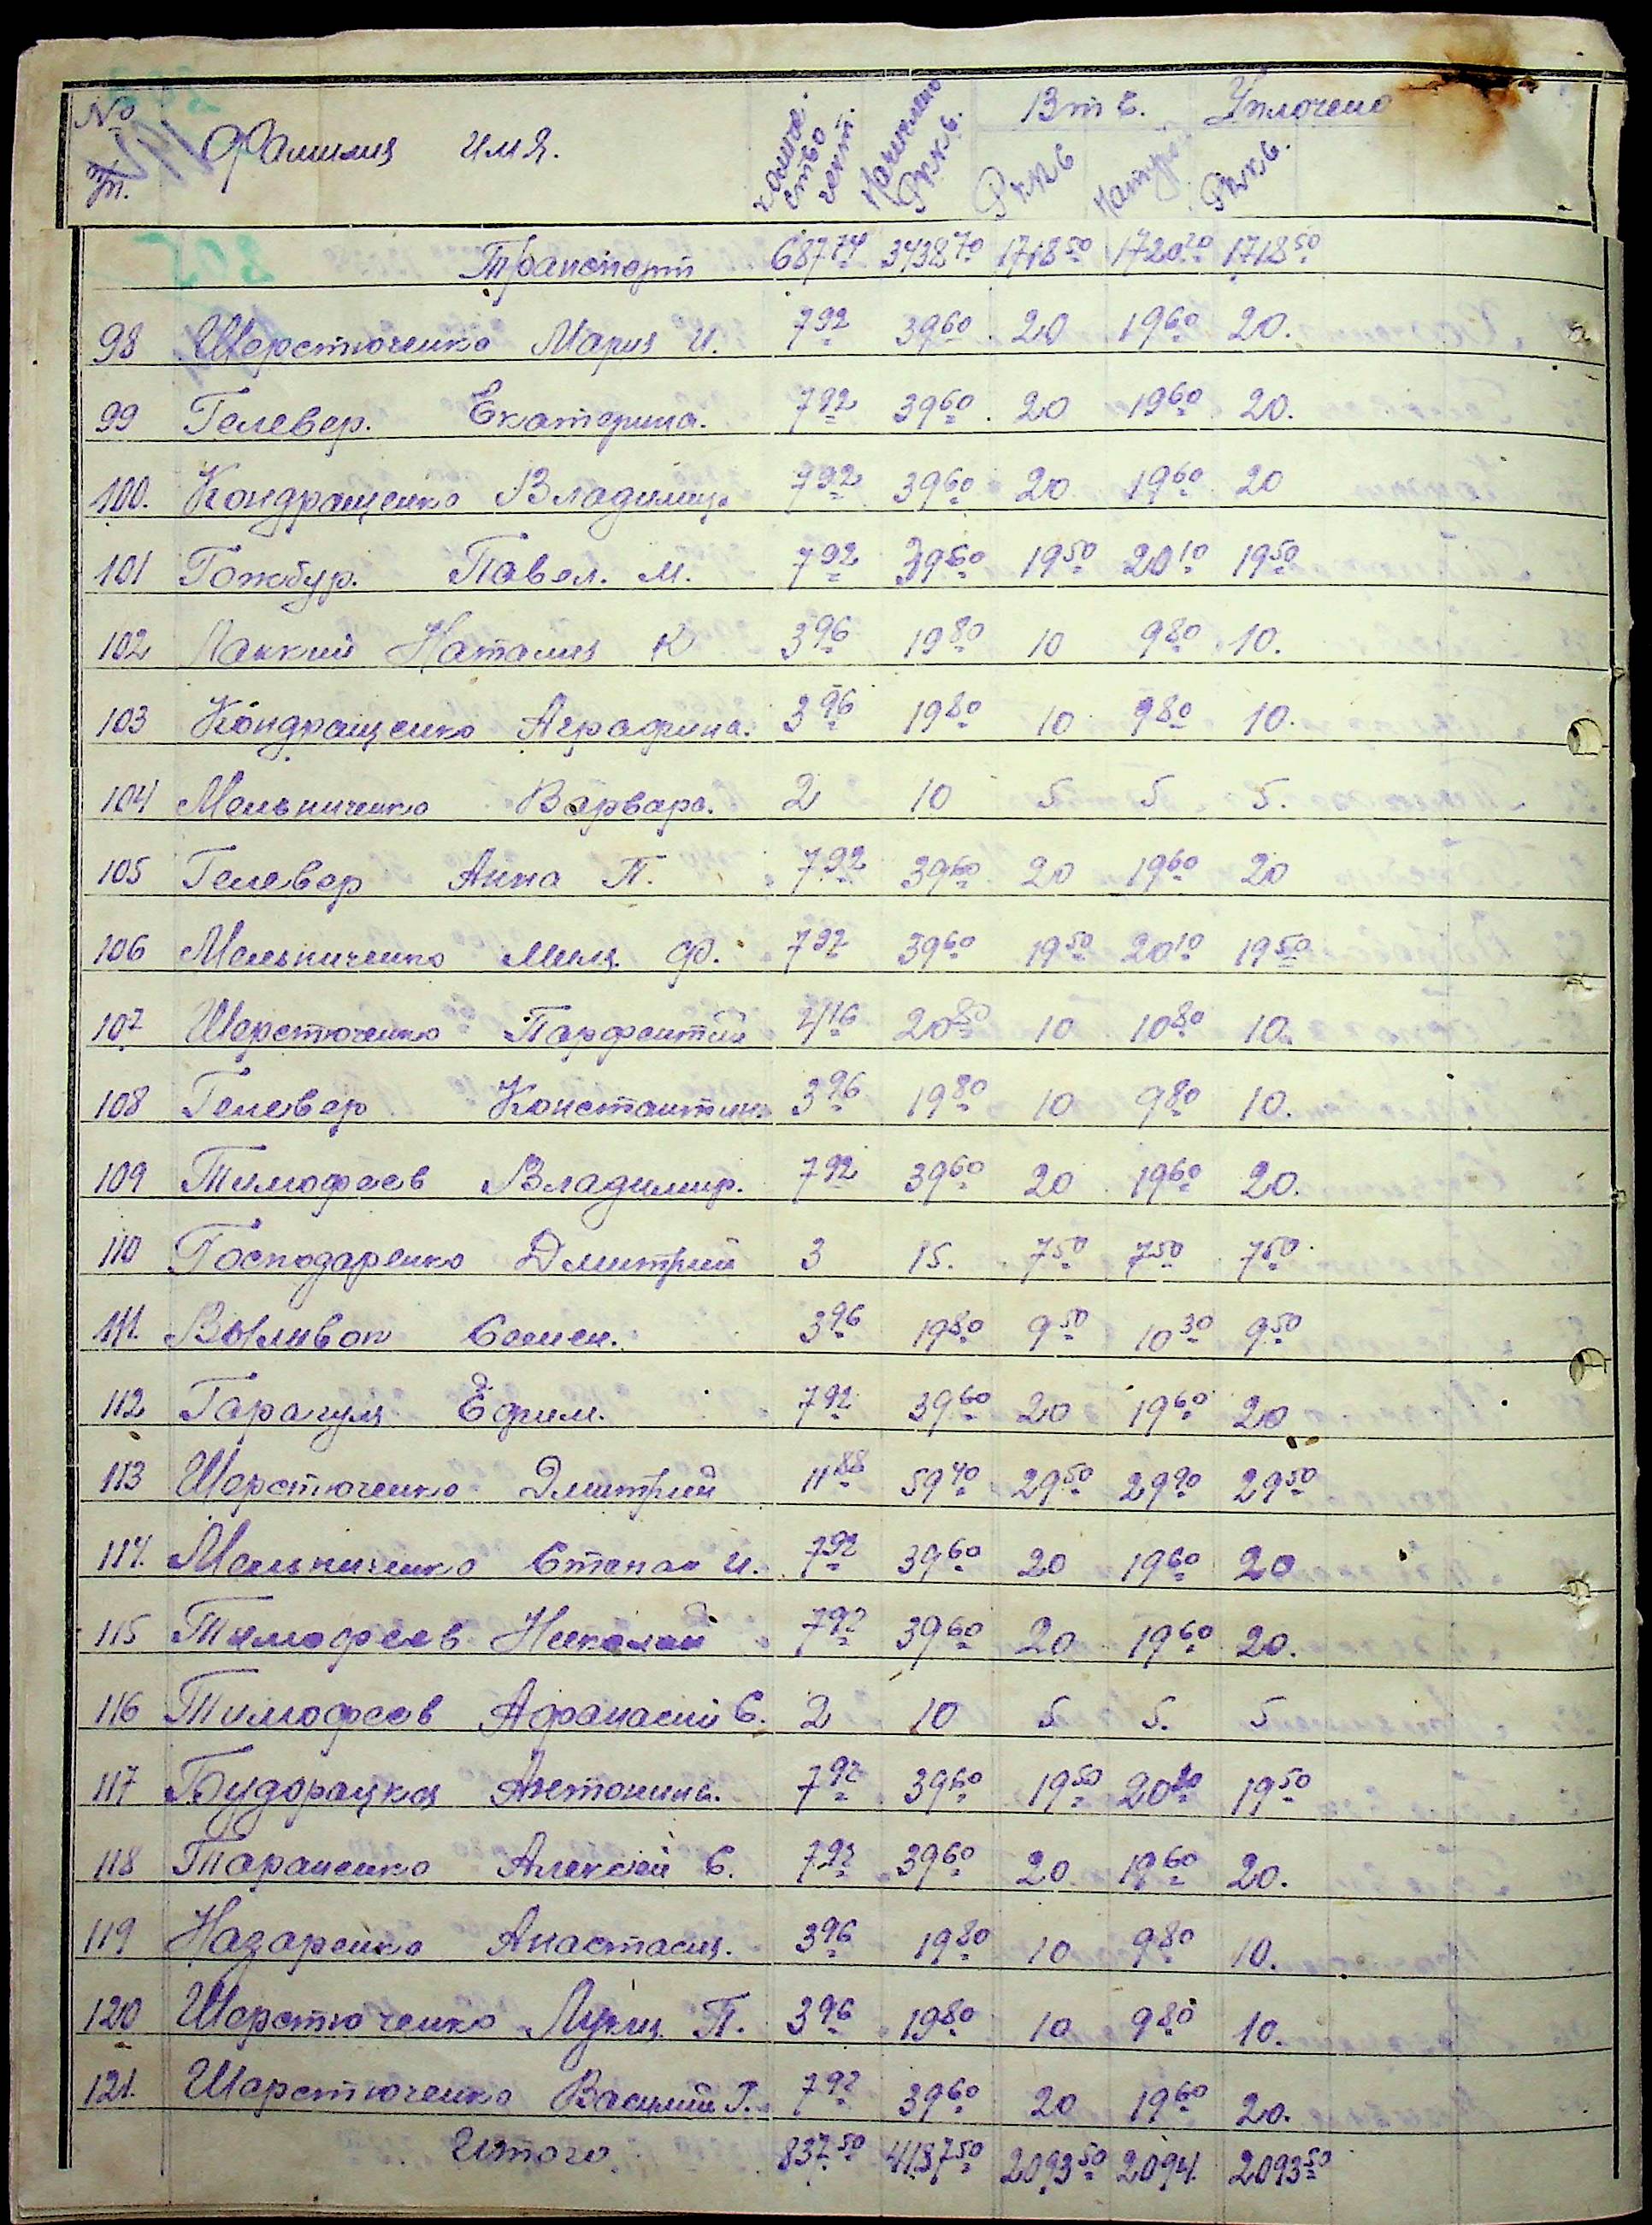 № пп. Фамилия имя. количество гект. Начислено Рккв. В т ч. Уплочено
Рккв Натуро Рккв.
Транспорт 687 74 3438 70 1718 50 1720 20 1718 50
98 Шерстюченко Мария И. 7 92 39 60 20 19 60 20.
99 Гелевер. Екатерина. 7 92 39 60 20 19 60 20.
100. Кондращенко Владимир 7 92 39 60 20 19 60 20
101 Гожбур. Павел. М. 7 92 39 60 19 50 20 10 19 50
102 Лаккий Наталия К 3 96 19 80 10 9 80 10.
103 Кондращенко Аграфина. 3 96 19 80 10 9 80 10.
104 Мельниченко Варвара. 2 10 5 5 5.
105 Гелевер Анна П. 7 92 39 60 20 19 60 20
106 Мельниченко Ф. 7 92 39 60 19 50 20 10 19 50
107 Шерстюченко Парфентий 4 16 20 80 10 10 80 10.
108 Гелевер Константин 3 96 19 80 10 9 80 10.
109 Тимофеев Владимир. 7 92 39 60 20 19 60 20.
110 Господаренко Дмитрий 3 15. 7 50 7 50 7 50
111. Выливок Семен. 3 96 19 80 9 50 10 30 9 50
112 Гарагуля Ефим. 7 92 39 60 20 19 60 20
113 Шерстюченко Дмитрий 11 88 59 40 29 50 29 90 29 50
114. Мельниченко Степан И. 7 92 39 60 20 19 60 20
115 Тимофеев Николай 7 92 39 60 20 19 60 20.
116 Тимофеев Афанасий С. 2 10 5 5. 5
117 Будорацкая Антонина. 7 92 39 60 19 50 20 10 19 50
118 Тараненко Алексей С. 7 92 39 60 20 19 60 20.
119 Назаренко Анастасия. 3 96 19 80 10 9 80 10.
120 Шерстюченко Лукия П. 3 96 19 80 10 9 80 10.
121. Шерстюченко Василий Г. 7 92 39 60 20 19 60 20.
Итого 837 50 4187 50 2093 50 2094 2093 50